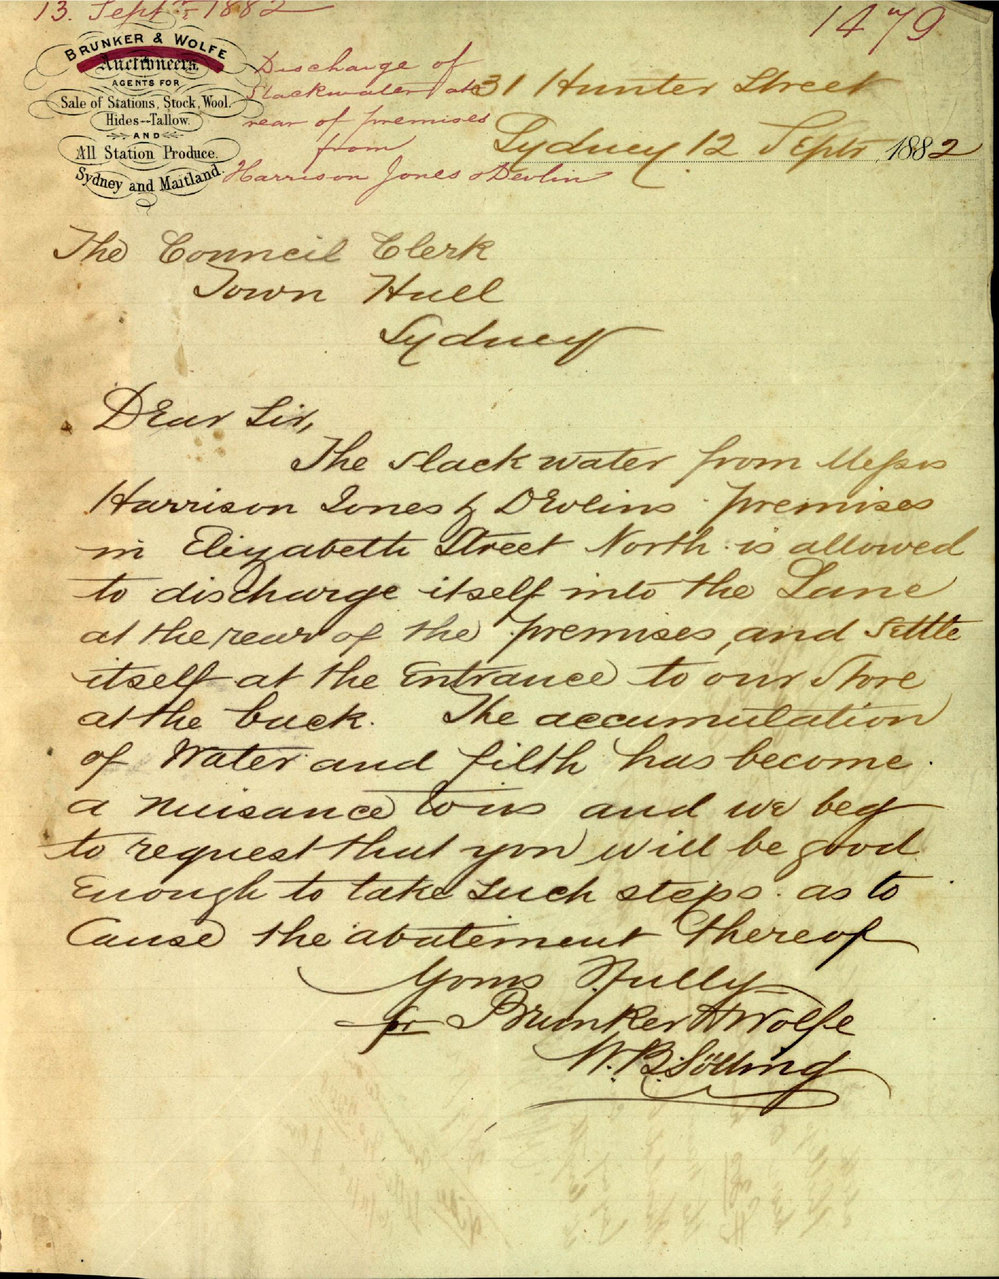 13. Septr 1882
1479
BRUNKER & WOLFE
Auctioneers.
AGENTS FOR
Sale of Stations, Stock, Wool.
Hides--Tallow.
AND
All Station Produce.
Sydney and Maitland.
Discharge of
Slackwater at
rear of premises
from
Harrison Jones & Devlin
31 Hunter Street
Sydney 12 Septr 1882
The Council Clerk
Town Hall
Sydney
Dear Sir,
The slack water from Messrs
Harrison Jones & Devlins premises
in Elizabeth Street North is allowed
to discharge itself into the Lane
at the rear of the premises, and settle
itself at the Entrance to our Store
at the back. The accumulation
of Water and filth has become
a nuisance to us and we beg
to request that you will be good
Enough to take such steps as to
Cause the abatement thereof
Yours Ffully
for Brunker & Wolfe
W. B. Sölling